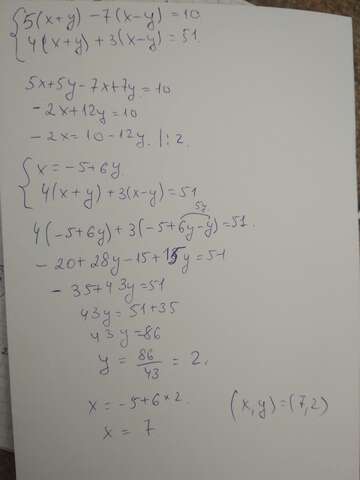 5(x+y) -7(x-y)=10
4(x+y)+3(x-y)=51.
5x+5y-7x+7y=10
-2x+12y=10
-2x=10-12y. |:2.
x=-5+6y
4(x+y)+3(x-y)=51
5y
4(-5+6y)+3(-5+6y-y)=51.
-20+28y-15+15y=51
-35+43y=51
43y=51+35
43y=86
y = 86/43 = 2.
x=-5+6×2. (x,y)=(7,2)
x=7